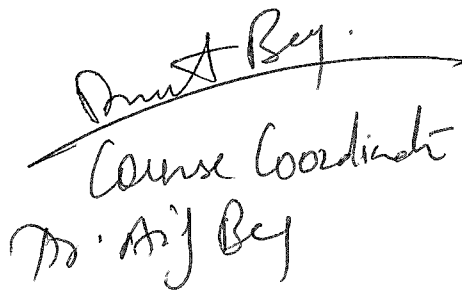 Beg.
Course Coordinator
Dr. Arif Beg